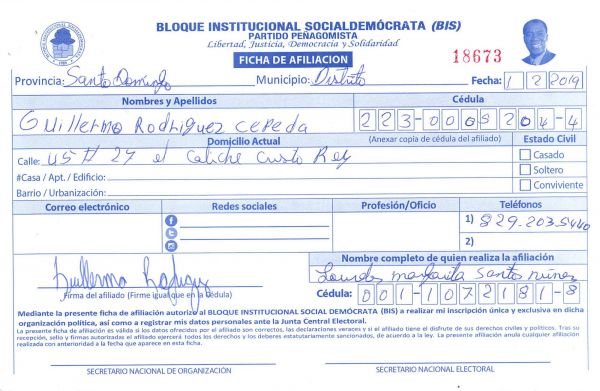 BLOQUE INSTITUCIONAL SOCIALDEMÓCRATA (BIS)
PARTIDO PEÑAGOMISTA
Libertad, Justicia, Democracia y Solidaridad
FICHA DE AFILIACION
18673
Provincia: Santo Domingo Municipio: Distrito Fecha: 1 / 2 / 2019
Nombres y Apellidos Cédula
Guillermo Rodriguez Cepeda 223-0005204-4
Domicilio Actual (Anexar copia de cédula del afiliado) Estado Civil
Calle: # 27 el Caliche Cristo Rey Casado
#Casa / Apt. / Edificio: Soltero
Barrio / Urbanización: Conviviente
Correo electrónico Redes sociales Profesión/Oficio Teléfonos
1) 829.203.5440
2)
Nombre completo de quien realiza la afiliación
Guillermo Rodriguez Lourdes margarita Santos núnez
Firma del afiliado (Firme igual que en la Cédula) Cédula: 001-1072181-8
Mediante la presente ficha de afiliación autorizo al BLOQUE INSTITUCIONAL SOCIAL DEMÓCRATA (BIS) a realizar mi inscripción única y exclusiva en dicha
organización política, así como a registrar mis datos personales ante la Junta Central Electoral.
La presente ficha de afiliación es válida si los datos ofrecidos por el afiliado son correctos, las declaraciones veraces y si el afiliado tiene el disfrute de sus derechos civiles y políticos. Tras su
recepción, sello y firmas autorizadas el afiliado ejercerá todos los derechos y los deberes estatutariamente sancionados, de acuerdo a la ley. La presente afiliación anula cualquier afiliación
realizada con anterioridad a la fecha que aparece en esta ficha.
SECRETARIO NACIONAL DE ORGANIZACIÓN SECRETARIO NACIONAL ELECTORAL